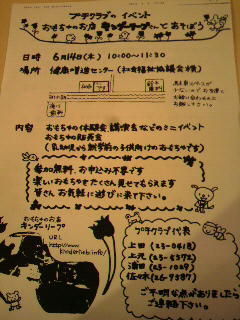 プチクラブの イベント
おもちゃのお店 キンダーリープさんとあそぼう
日時 6月14日(木) 10:00〜11:30
場所 健康増進センター (社会福祉協議会横)
駐車スペースが
少ないので お気を
お願いします。
内容 おもちゃの体験会、講演会などのミニイベント
おもちゃの販売会
(乳幼児から就学前の子供向けのおもちゃです)
参加無料、お申込み不要です
楽しいおもちゃをたくさん見せてもらえます
皆さん お気軽に遊びに来て下さい。
おもちゃのお店
キンダーリープ
URL
http://www.
kinderlieb.info/
プチクラブ代表
上田
上元
浦田
佐々木
ご不明な点がありましたら
ご連絡下さい。